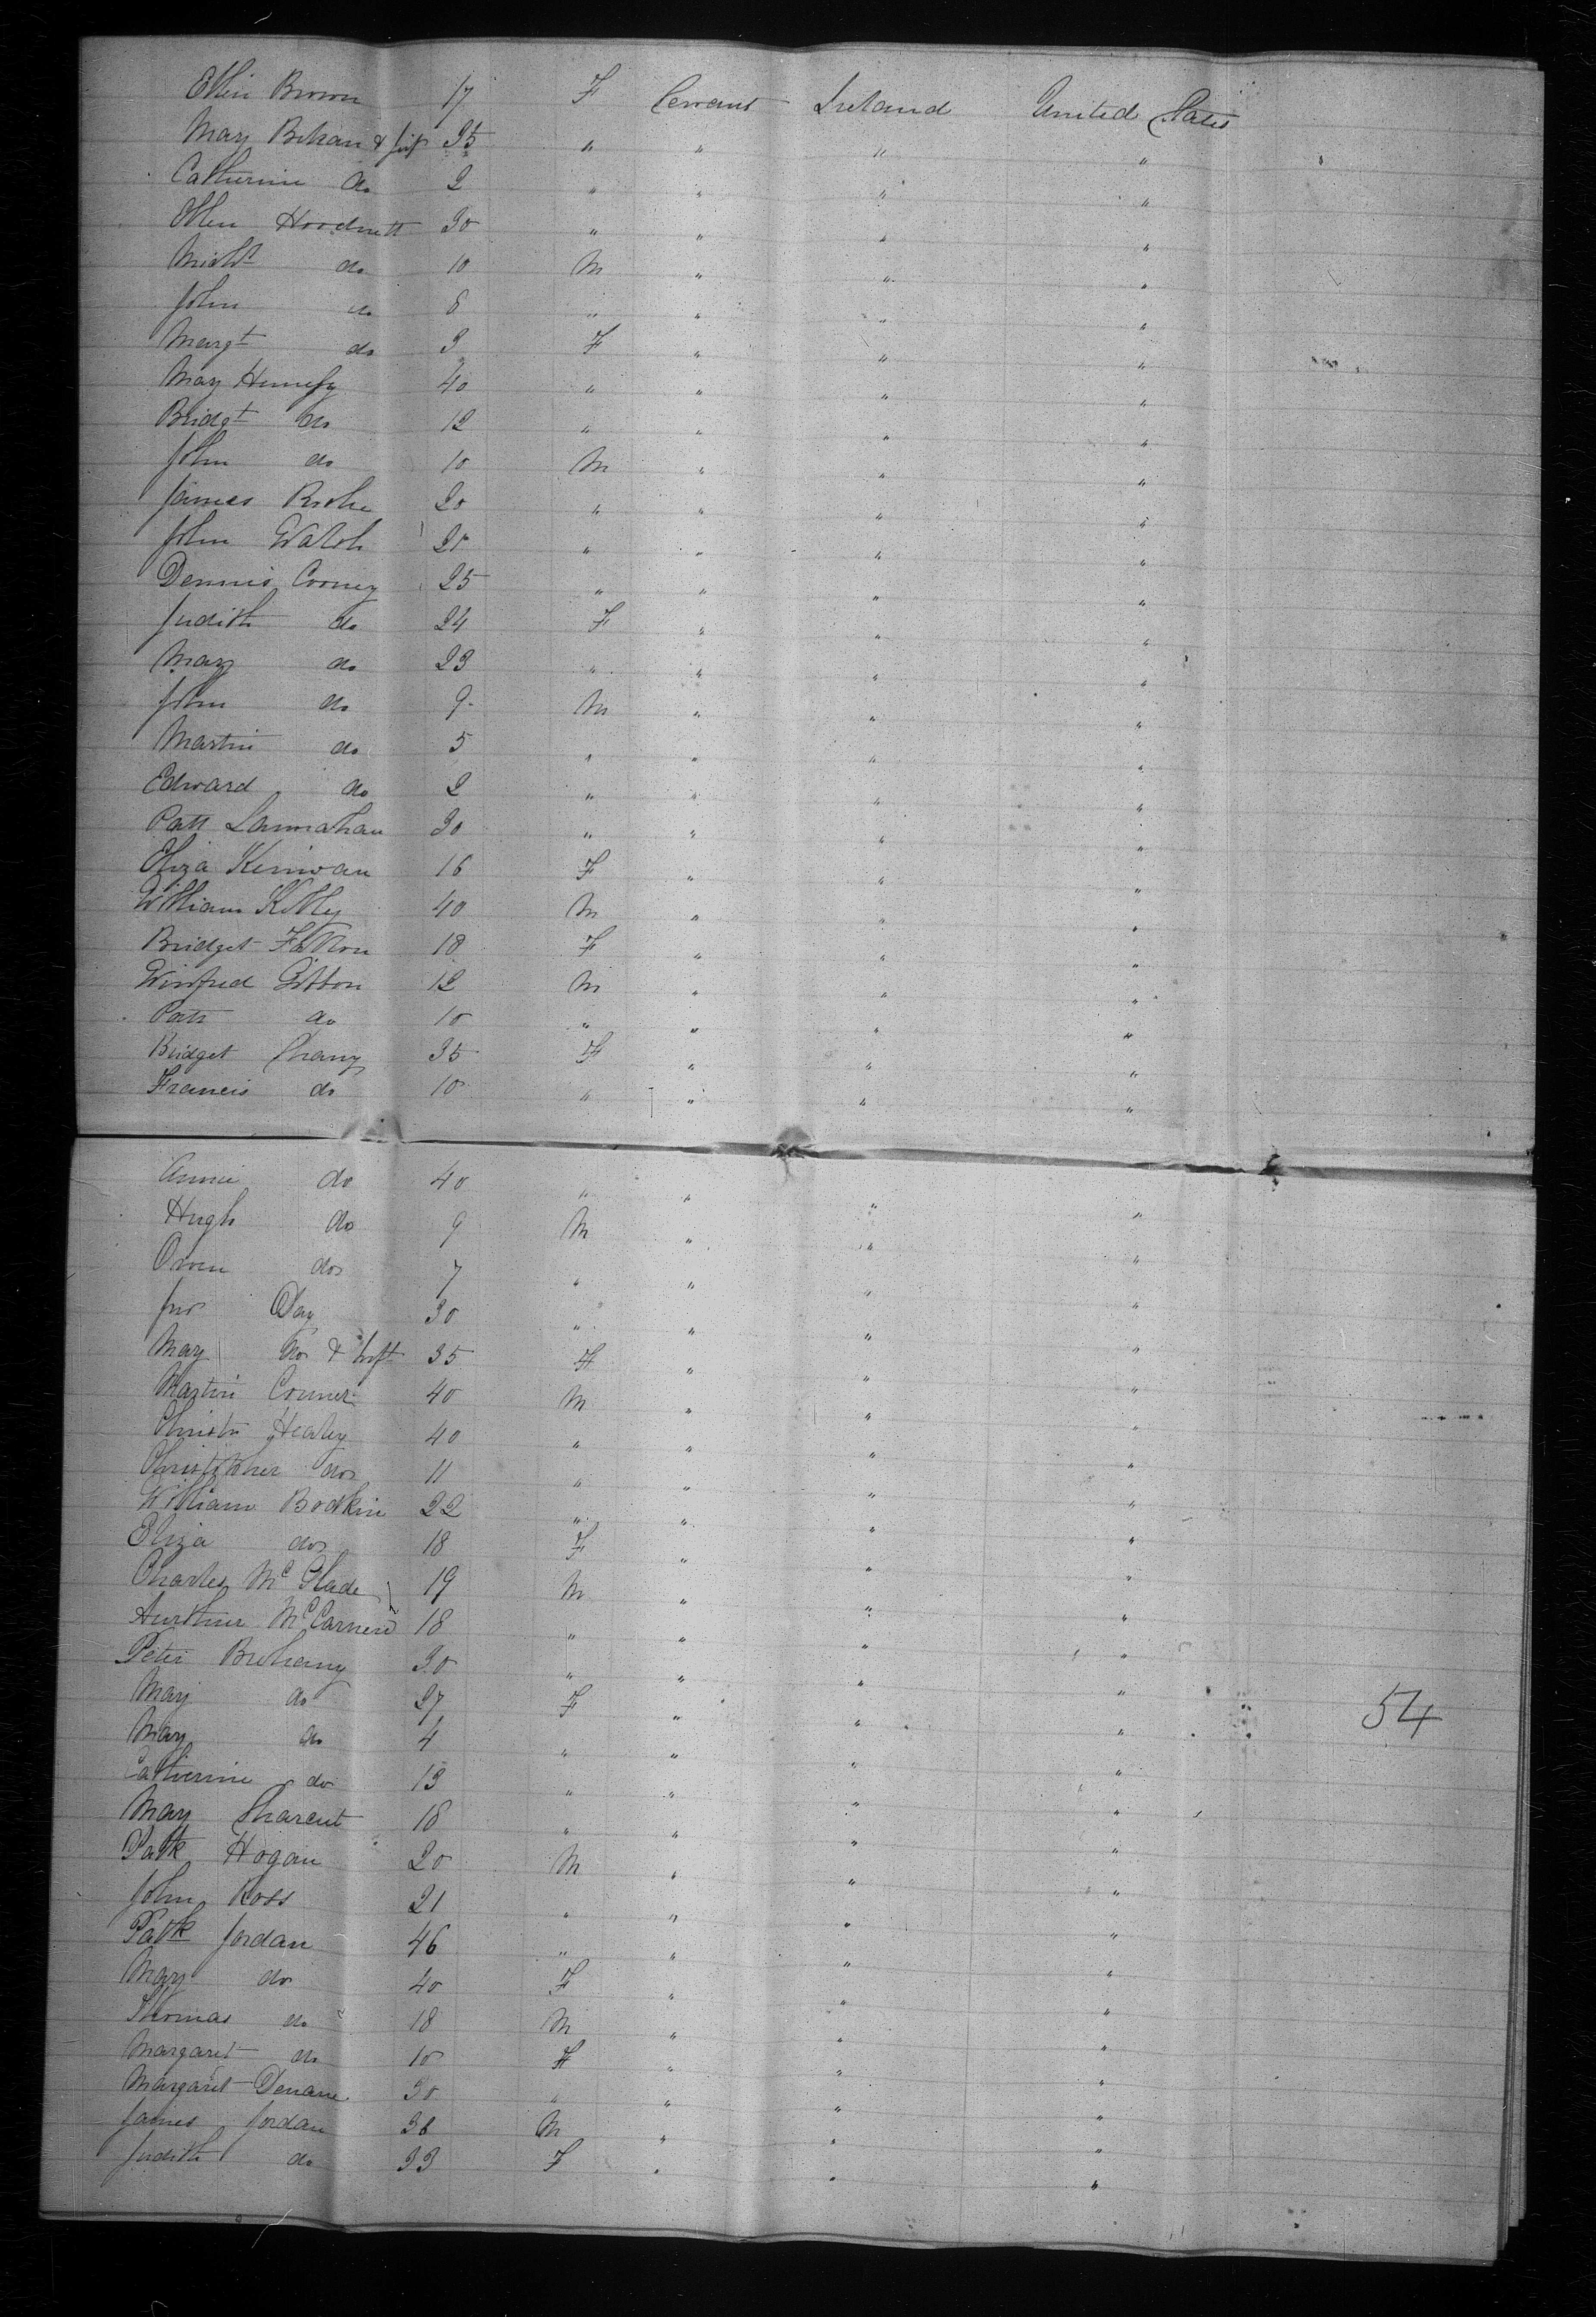 Ellen Brown 17 F Servant Ireland United States
Mary Behan & Inft 35 " " " "
Catherine do 2 " " " "
Ellen Hoodnett 30 " " " "
Michl do 10 M " " "
John do 8 " " " "
Margt do 3 F " " "
Mary 40 " " " "
Bridgt do 12 " " " "
John do 10 M " " "
James 20 " " " "
John Walsh 21 " " " "
Dennis Cooney 25 " " " "
Judith do 24 F " " "
Mary do 23 " " " "
John do 9 M " " "
Martin do 5 " " " "
Edward do 2 " " " "
Patt 30 " " " "
Eliza Kirwan 16 F " " "
William Kelly 40 M " " "
Bridget Fallon 18 F " " "
Winifred Gibbon 12 M " " "
Patt do 10 " " " "
Bridget 35 F " " "
Francis do 10 " " " "
Annie do 40 " " " "
Hugh do 9 M " " "
Owen do 7 " " " "
Jno Day 30 " " " "
Mary do & Inft 35 F " " "
Martin Conner 40 M " " "
Christr Healey 40 " " " "
Christopher do 11 " " " "
William Bodkin 22 " " " "
Eliza do 18 F " " "
Charles McGlade 19 M " " "
Aurthur 18 " " " "
Peter Brehany 30 " " " "
Mary do 27 F " " "
Mary do 4 " " " "
Catherine do 13 " " " "
54
Mary 18 " " " "
Patk Hogan 20 M " " "
John Ross 21 " " " "
Patk Jordan 46 " " " "
Mary do 40 F " " "
Thomas do 18 M " " "
Margaret do 10 F " " "
Margaret Denane 30 " " " "
James Jordan 36 M " " "
Judith do 33 F " " "